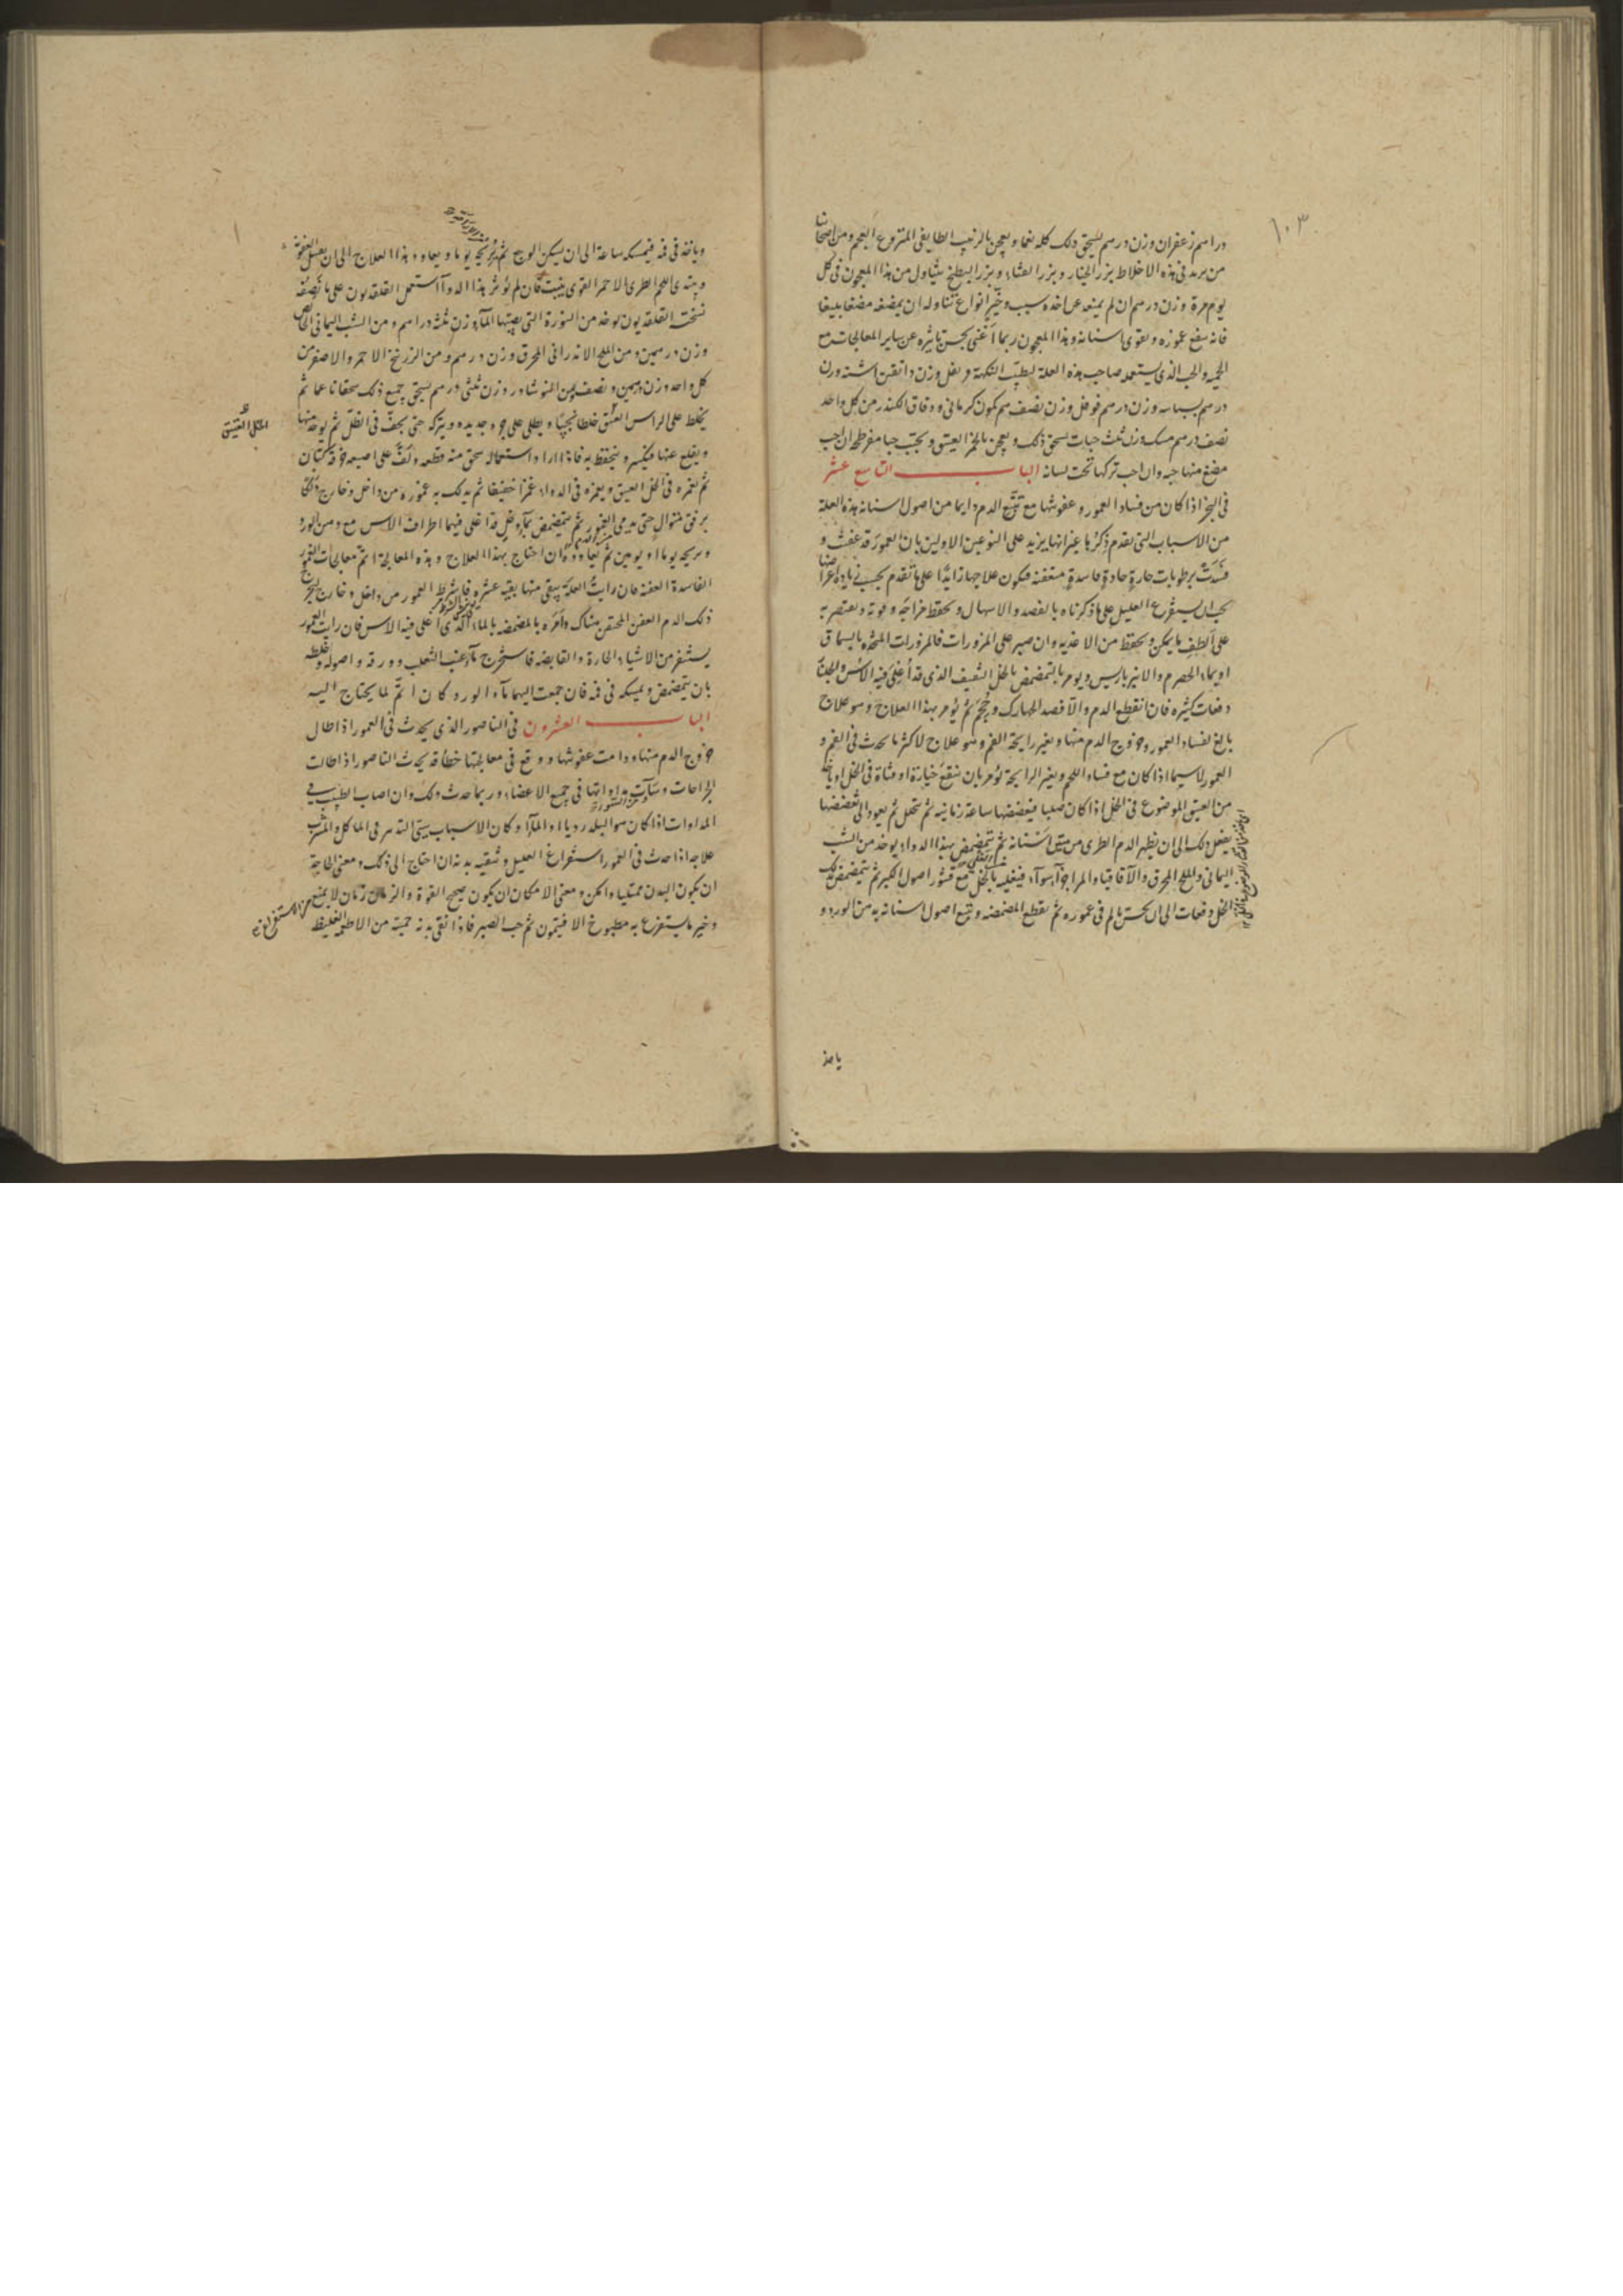 ١٠٣
دراهم زعفران وزن درهم يسحق ذلك كله نعما ويعجن بالزبيب الطايفى المنزوع العجم ومن اصحابنا
من يزيد فى هذه الاخلاط بزر الخيار وبزر القثاء وبزر البطيخ يتناول من هذا المعجون فى كل
يوم مرة وزن درهم ان لم يمنعه عن اخذه سبب وخير انواع تناوله ان يمضغه مضغا بليغا
فانه ينفع عموره ويقوى اسنانه وهذا المعجون ربما اغنى بحسن تاثيره عن ساير المعالجات مع
الحمية والحب الذى يستعمله صاحب هذه العلة لطيب النكهة قرنفل وزن دانقين اشنه وزن
درهم بسباسه وزن درهم فوفل وزن نصف درهم كمون كرمانى ودقاق الكندر من كل واحد
نصف درهم مسك وزن ثلث حبات يسحق ذلك ويعجن بالخمر العتيق ويحبب حبا مفرطحا ان احب
مضغ منها حبه وان احب تركها تحت لسانه الباب التاسع عشر
فى البخر اذا كان من فساد العمور وعفونتها مع الدم دايما من اصول اسنانه هذه العلة
من الاسباب التى تقدم ذكرها غير انها يزيد على النوعين الاولين بان العمور قد عفنت و
فسدت برطوبات حارة حادة فاسدة متعفنة فيكون علاجها زايدا على ما تقدم بحسب زيادة اعراضها
يجب ان يستفرغ العليل على ما ذكرناه بالفصد والاسهال ويحفظ مزاجه وقوته ويقتصر به
على الطف ما يمكن ويحفظ من الاغذيه وان صبر على المزورات فالمزورات المتخذه بالسماق
او بماء الحصرم والانبرباريس ويومر بالتمضمض بالخل الثقيف الذى قد اغلى فيه الاس والجلنار
دفعات كثيره فان انقطع الدم والا فصد الجهارك وحجم ثم يومر بهذا العلاج وهو علاج
بالغ لفساد العمور وخروج الدم منها وتغير رايحة الفم وهو علاج لاكثر ما يحدث فى الفم و
العمور لاسيما اذا كان مع فساد اللحم وتغير الرايحة يومر بان ينقع خيارة او قثاة فى الخل او ياخذ
من العتيق الموضوع فى الخل اذا كان صلبا فيعضضها ساعة زمانيه ثم يتخلل ثم يعود الى تعضضها
يفعل ذلك الى ان يظهر الدم الطرى من بين اسنانه ثم يتمضمض بهذا الدواء يوخذ من الشب
اليمانى والملح المحرق والاقاقيا والمر اجزآ سوآء فيغليه بالخل مع قشور اصول الكبر ثم يتمضمض بذلك
الخل دفعات الى ان يحس بالم فى عموره ثم يقطع المضمضه ويتبع اصول اسنانه بدهن الورد و
ياخذ
وياخذ فى فمه فيمسكه ساعة الى ان يسكن الوجع ثم يريحه يوما ويعاود هذا العلاج الى ان يغسل العفونة
ويبتدى اللحم الطرى الاحمر القوى ينبت فان لم يوثر هذا الدوآء استعمل القلقديون على ما نصفه
نسخت القلقديون يوخذ من النورة التى يصبها المآء وزن ثلثه دراهم ومن الشب اليمانى الخالص
وزن درهمين ومن الملح الاندرانى المحرق وزن درهم ومن الزرنيخ الاحمر والاصفر من
كل واحد وزن درهمين ونصف ومن النوشادر وزن ثلثى درهم يسحق جميع ذلك سحقا ناعما ثم
يخلط على الراس العتيق خلطا نجيبا ويطلى على جره جديده ويتركه حتى يجف فى الظل ثم يوخذ منها
الخل العتيق
ويقلع عنها فيكسر ويحتفظ به فاذا اراد استعماله سحق منه قطعه ولف على اصبعه خرقة كتان
ثم يغمزه فى الخل العتيق ويغمزه فى الدواء غمزا خفيفا ثم يدلك به عموره من داخل وخارج دلكا
برفق متوال حتى يدمى العمور ثم يتمضمض بمآء وخل قد اغلى فيهما اطراف الاس مع دهن الورد
ويريحه يوما او يومين ثم يعاوده ان احتاج بهذا العلاج وهذه المعالجة اتم معالجات العمور
الفاسدة العفنه فان رايت العلة يبقى منها بقيه عشره فاشرط العمور من داخل وخارج ليخرج
ذلك الدم العفن المحتقن هناك وامره بالمضمضه بالماء الذى اغلى فيه الاس فان رايت العمور
يستضر من الاشياء الحارة والقابضه فاستخرج مآء عنب الثعلب وورقه واصوله وخلطه
بان يتمضمض ويمسكه فى فمه فان جمعت اليهما مآء الورد كان اتم لما يحتاج اليه
الباب العشرون فى الناصور الذى يحدث فى العمور اذا طال
خروج الدم منها ودامت عفونتها ووقع فى معالجتها خطأ قد يحدث الناصور اذا طالت
الجراحات وسآءت مداواتها فى جميع الاعضاء وربما حدث ذلك وان اصاب الطبيب فى
المداوات اذا كان هوا البلد رديا او المآء وكان الاسباب سيئ التدبير فى الماكل والمشرب
علاجه اذا حدث فى العمور استفراغ العليل وتنقيه بدنه ان احتاج الى ذلك ومعنى الحاجة
ان يكون البدن ممتليا وامكن ومعنى الامكان ان يكون صحيح القوة والزمان زمان لا يمنع من الاستفراغ فيه
وخير ما يستفرغ به مطبوخ الافتيمون ثم حب الصبر فاذا نقى بدنه حميته من الاطعمه الغليظه